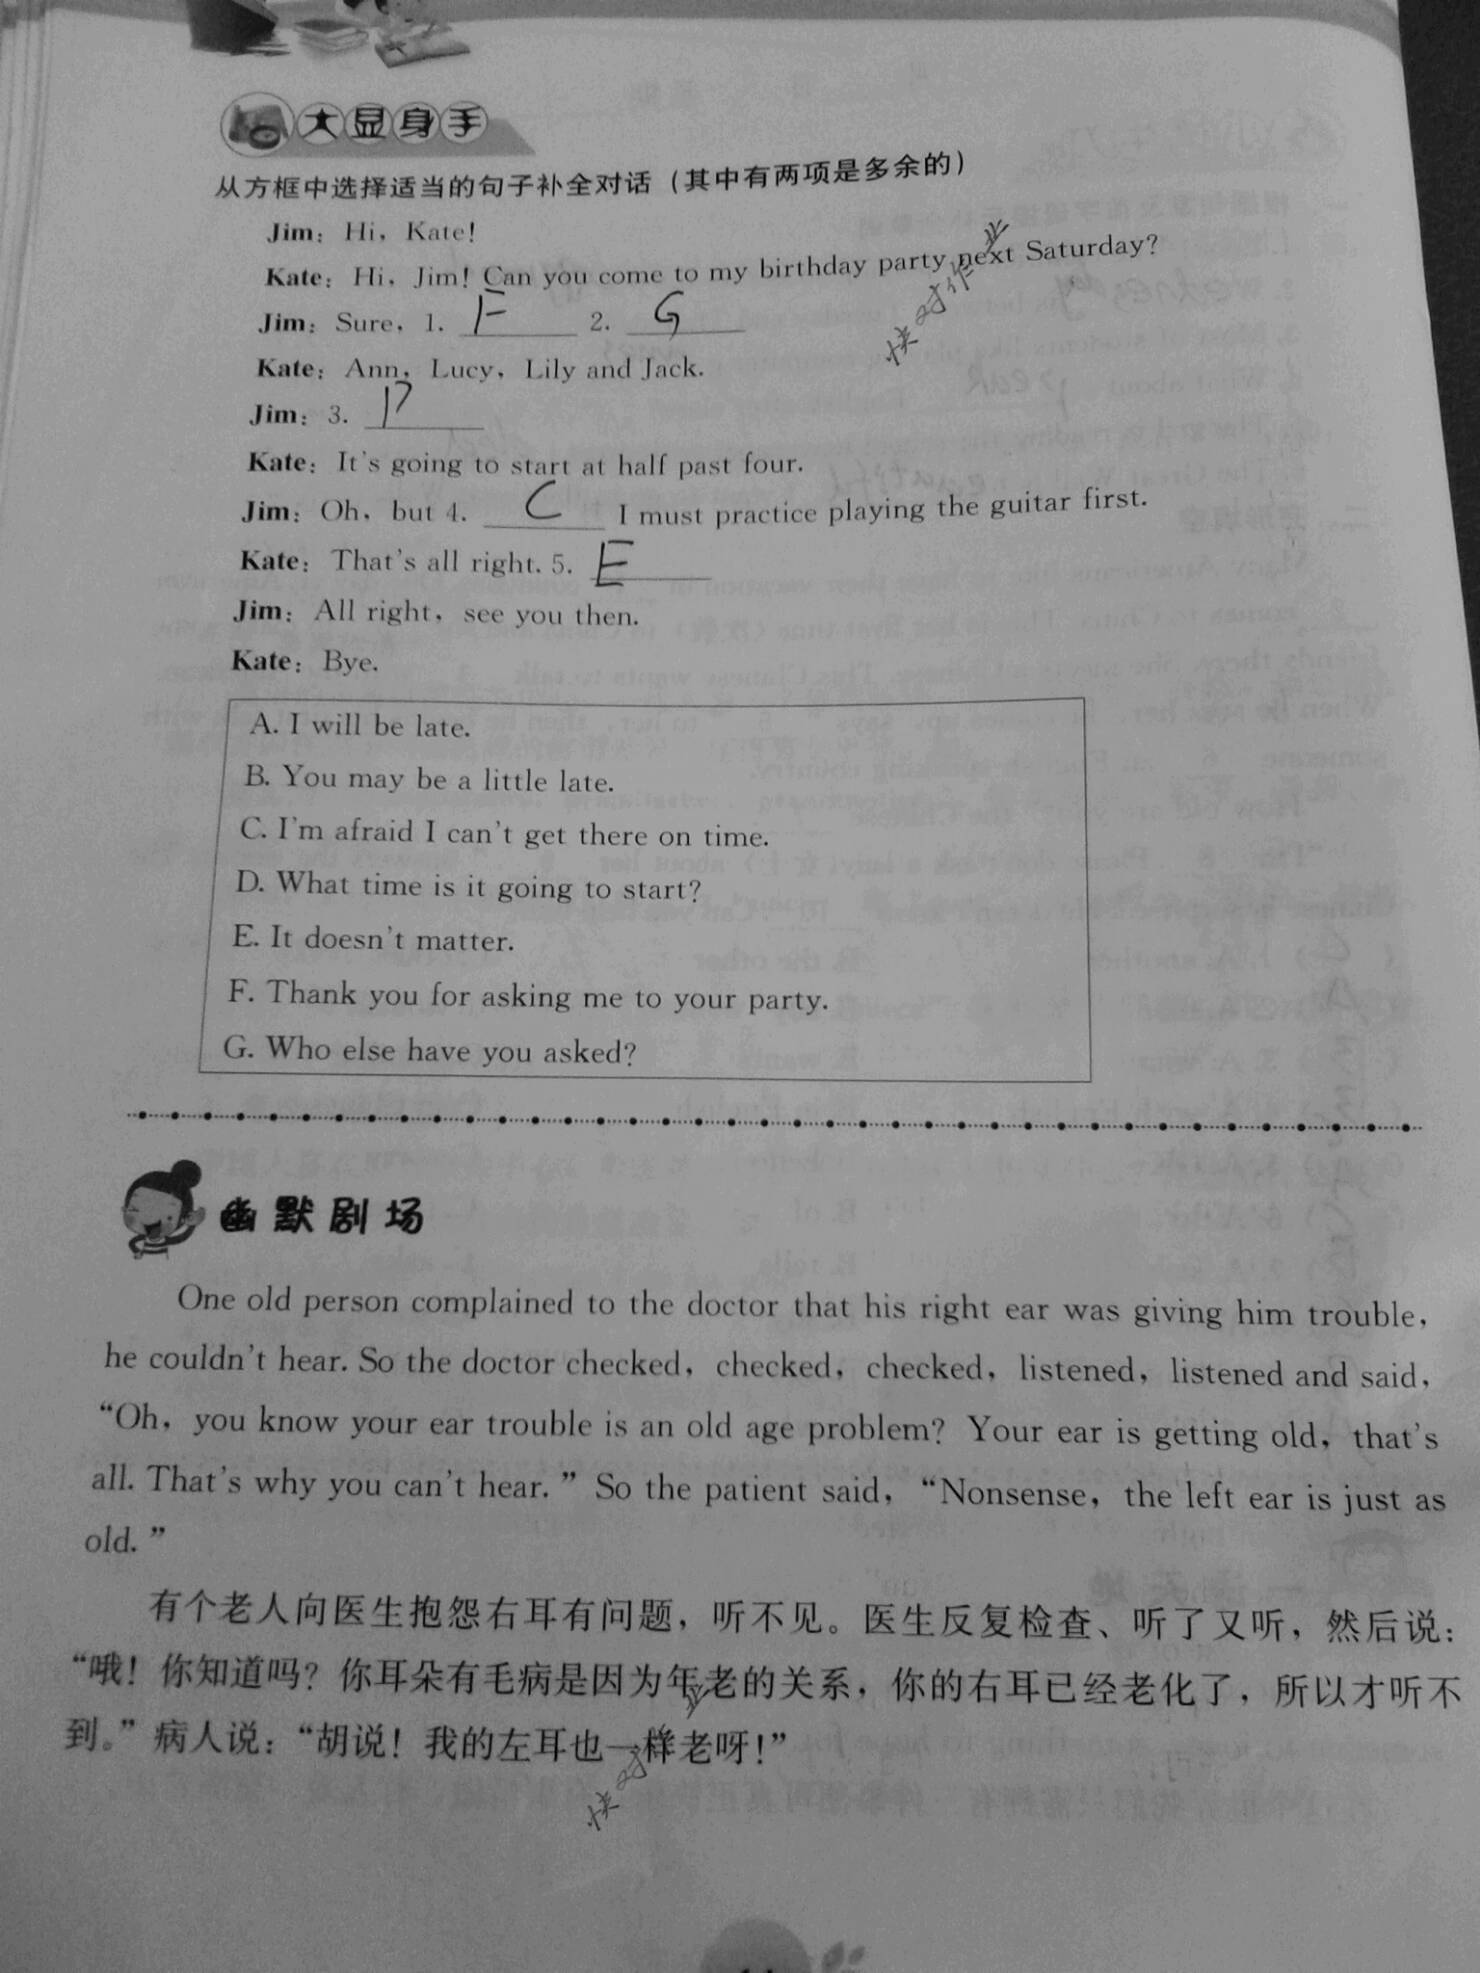 大显身手
从方框中选择适当的句子补全对话（其中有两项是多余的）
Jim：Hi，Kate！
Kate：Hi，Jim！Can you come to my birthday party next Saturday？
Jim：Sure，1. F 2. G
Kate：Ann，Lucy，Lily and Jack.
Jim：3. D
Kate：It's going to start at half past four.
Jim：Oh，but 4. C I must practice playing the guitar first.
Kate：That's all right. 5. E
Jim：All right，see you then.
Kate：Bye.
A. I will be late.
B. You may be a little late.
C. I'm afraid I can't get there on time.
D. What time is it going to start？
E. It doesn't matter.
F. Thank you for asking me to your party.
G. Who else have you asked？
幽默剧场
One old person complained to the doctor that his right ear was giving him trouble，
he couldn't hear. So the doctor checked，checked，checked，listened，listened and said，
“Oh，you know your ear trouble is an old age problem？Your ear is getting old，that's
all. That's why you can't hear. ” So the patient said，“Nonsense，the left ear is just as
old. ”
有个老人向医生抱怨右耳有问题，听不见。医生反复检查、听了又听，然后说：
“哦！你知道吗？你耳朵有毛病是因为年老的关系，你的右耳已经老化了，所以才听不
到。”病人说：“胡说！我的左耳也一样老呀！”
快对作业
快对作业